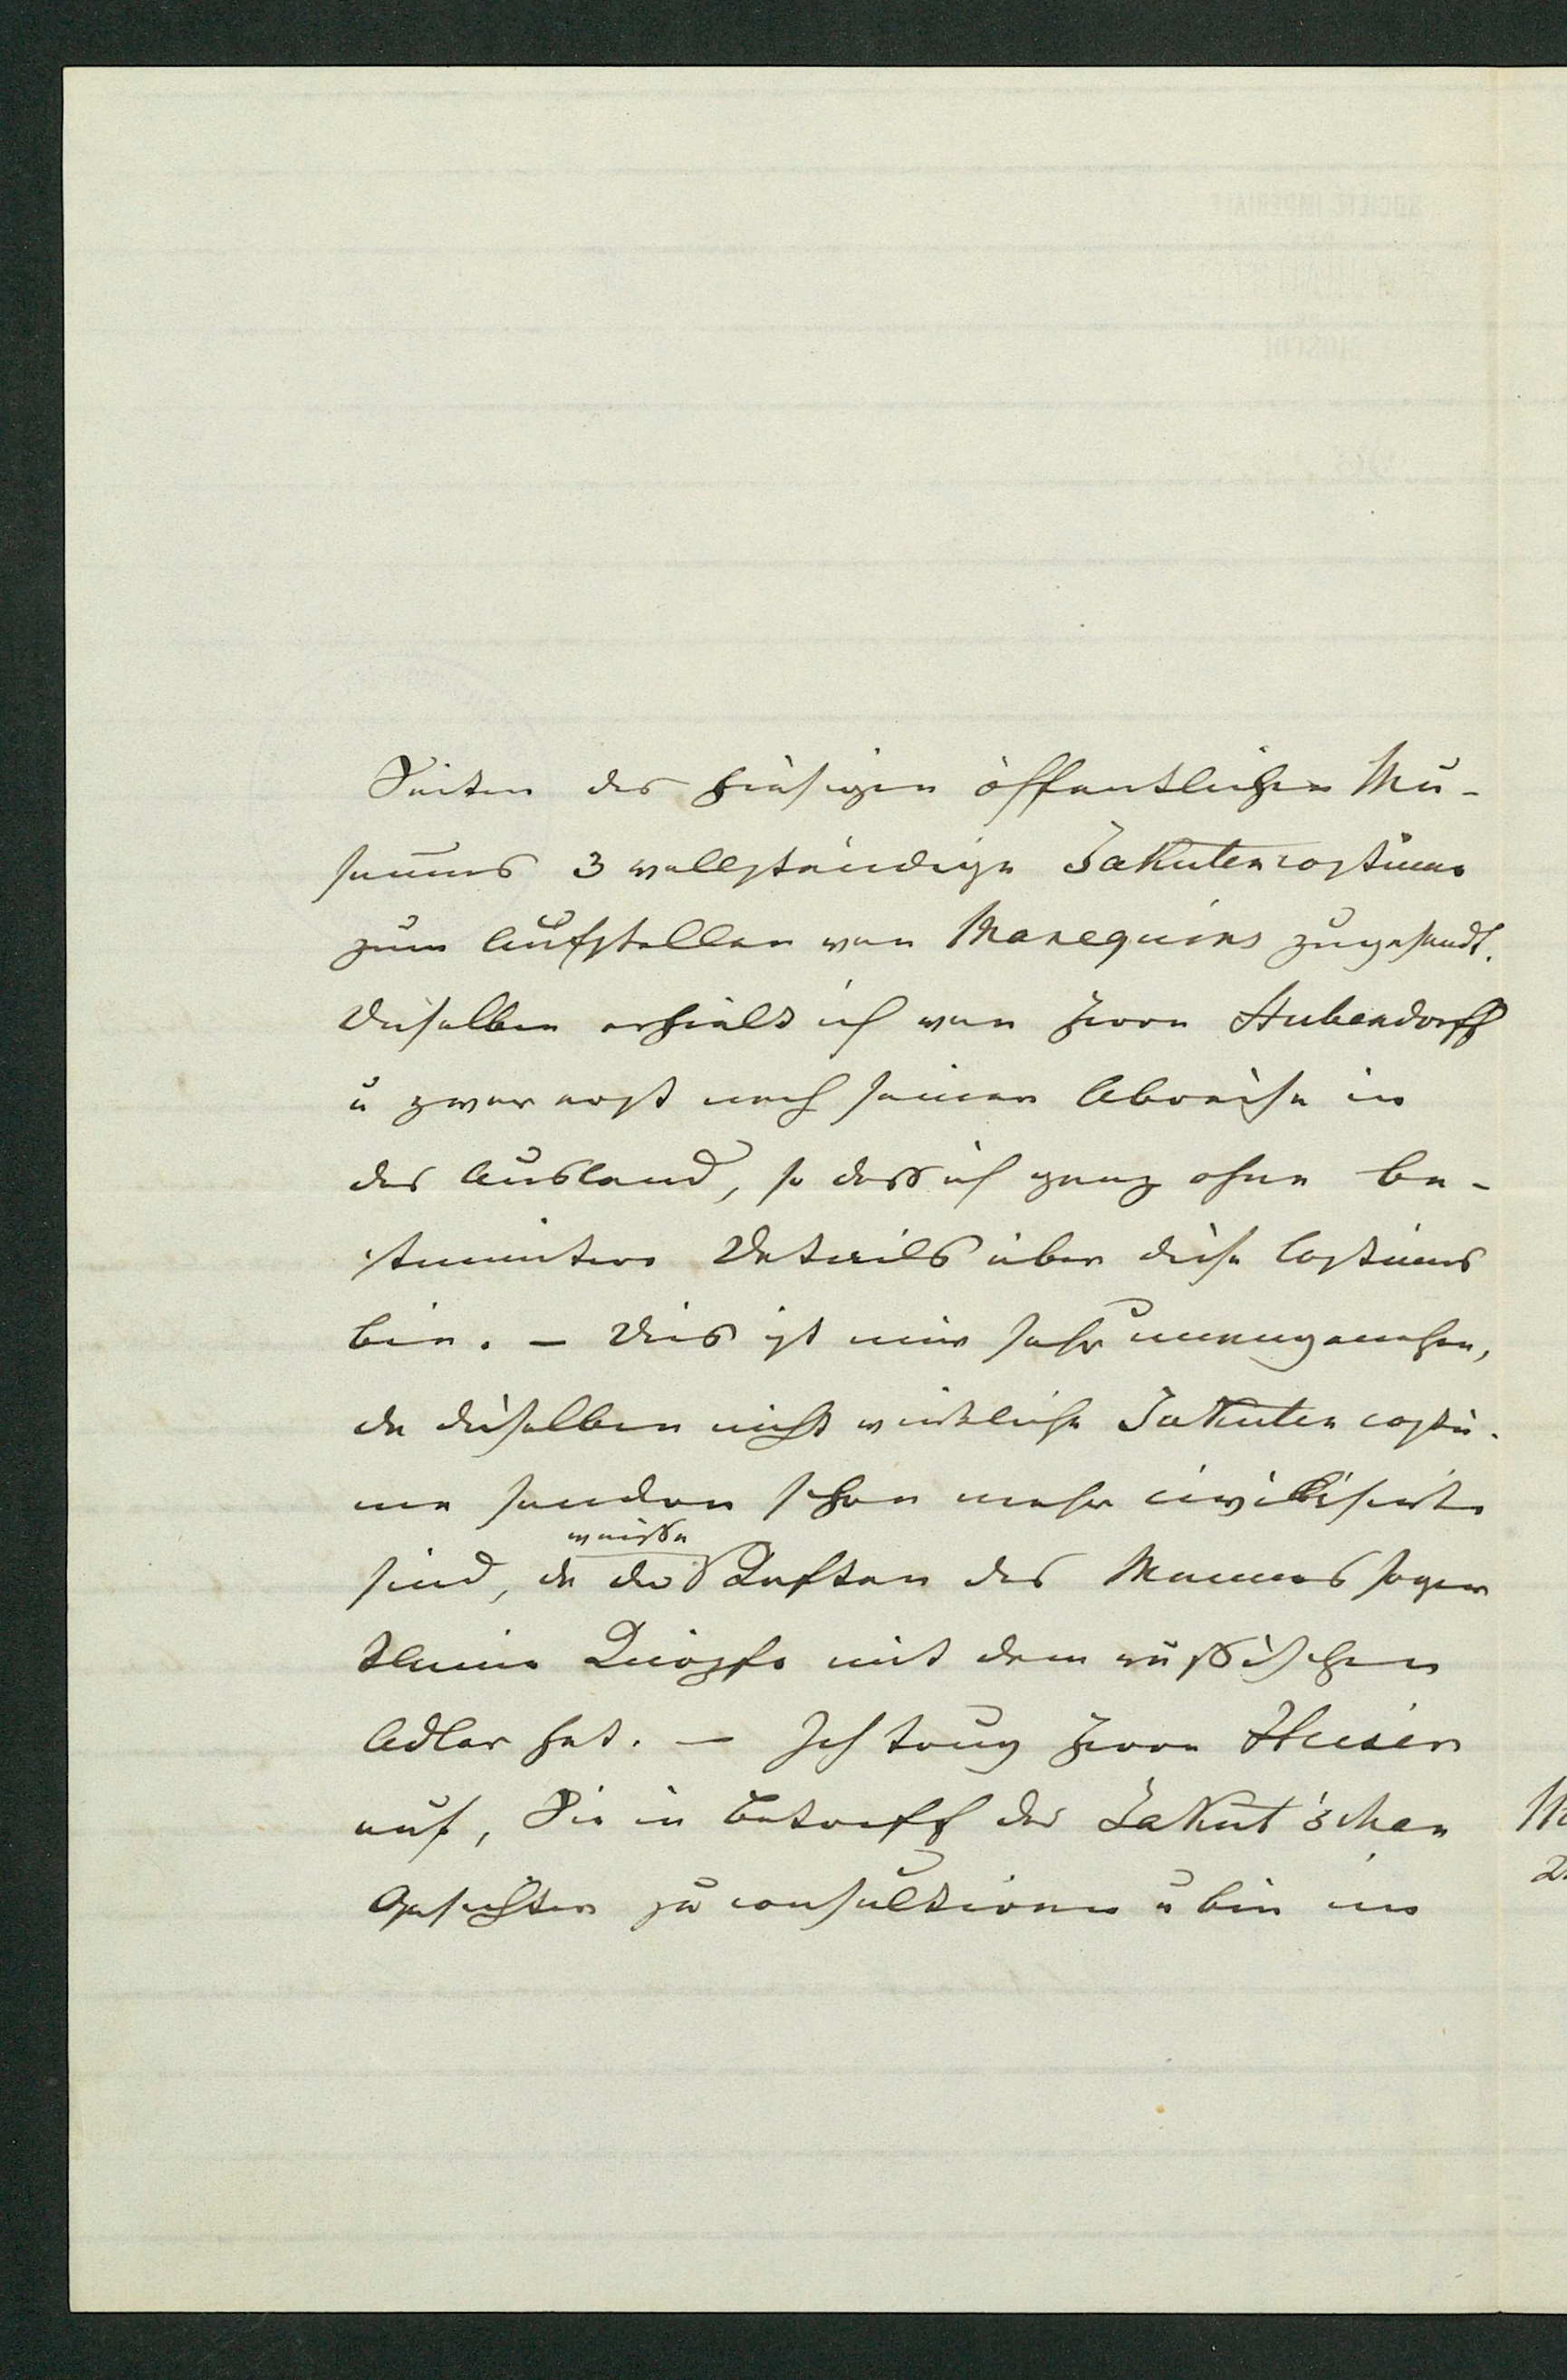 SOCIÉTÉ IMPÉRIALE
MOSCOU
Seiten des hiesigen öffentlichen Mu-
seums 3 vollständige Jakutencostüme
zum Aufstellen von Manequins zugesandt.
Dieselben erhielt ich von Herrn Stubendorff
u zwar erst nach seiner Abreise in
das Ausland, so dass ich ganz ohne be-
stimmtere Details über diese Costüms
bin. – Dies ist mir sehr unangenehm,
da dieselben nicht wirkliche Jakuten costü-
me sondern schon mehr civilisirte
weisse
sind, da der Kaftan des Mannes sogar
kleine Knöpfe mit dem russischen
Adler hat. – Ich trug Herrn Heuser
auf, Sie in Betreff der Jakut'schen
Gesichter zu consultiren u bin im